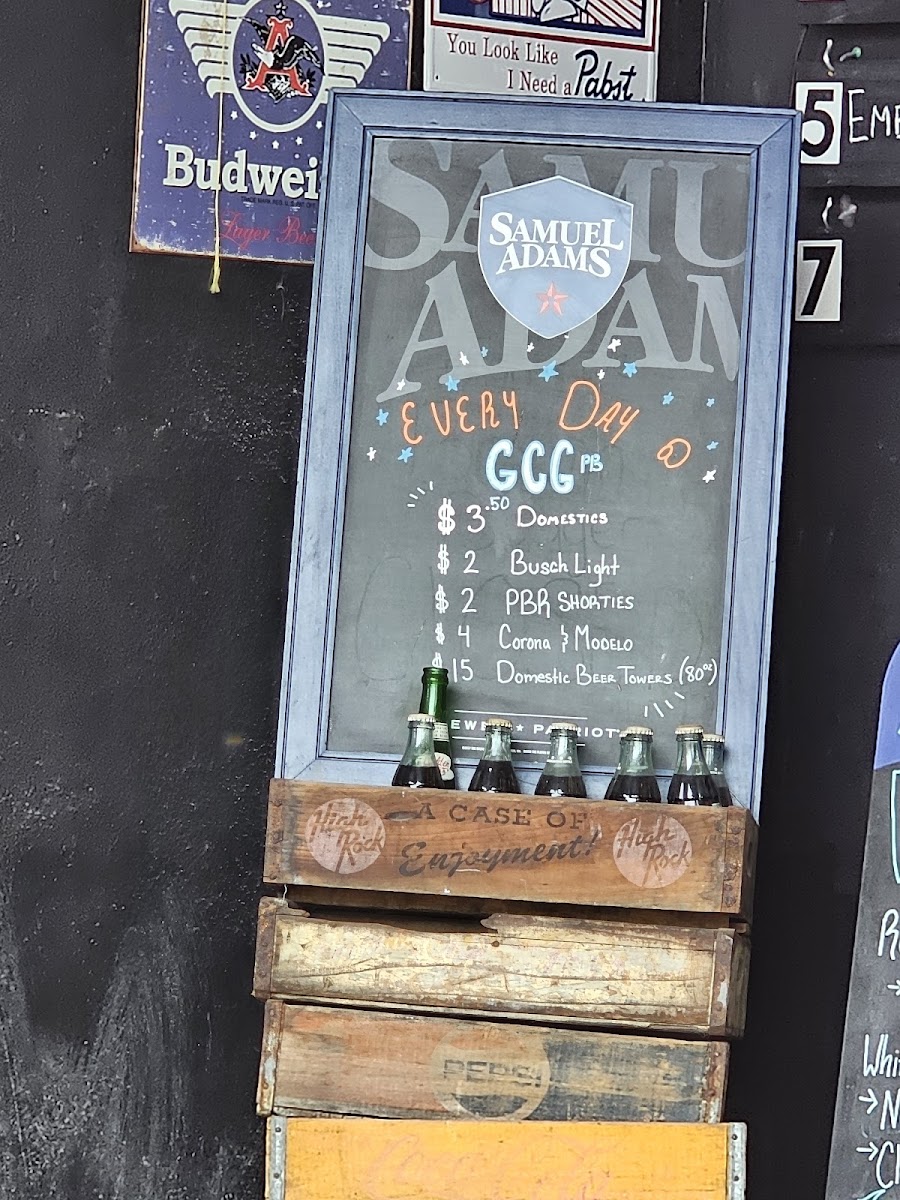 You Look Like
I Need a Pabst
A
Budwei
TRADE MARK REG. U.S. PAT. OFF.
Lager Bee
5 EME
7
SAMU
ADAM
SAMUEL
ADAMS
EVERY DAY @
GCG PB
$ 3.50 DOMESTICS
$ 2 Busch Light
$ 2 PBR SHORTIES
$ 4 Corona & MODELO
$ 15 DOMESTIC BEER TOWERS (80oz)
EWE ★ PATRIOT
High Rock
A CASE OF
Enjoyment!
High Rock
PEPSI
Whi
→N
→C